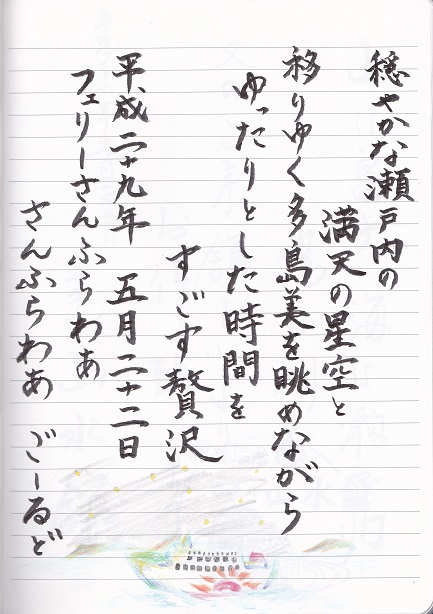 穏やかな瀬戸内の
満天の星空と
移りゆく多島美を眺めながら
ゆったりとした時間を
すごす贅沢
平成二十九年 五月二十二日
フェリーさんふらわあ
さんふらわあ ごーるど